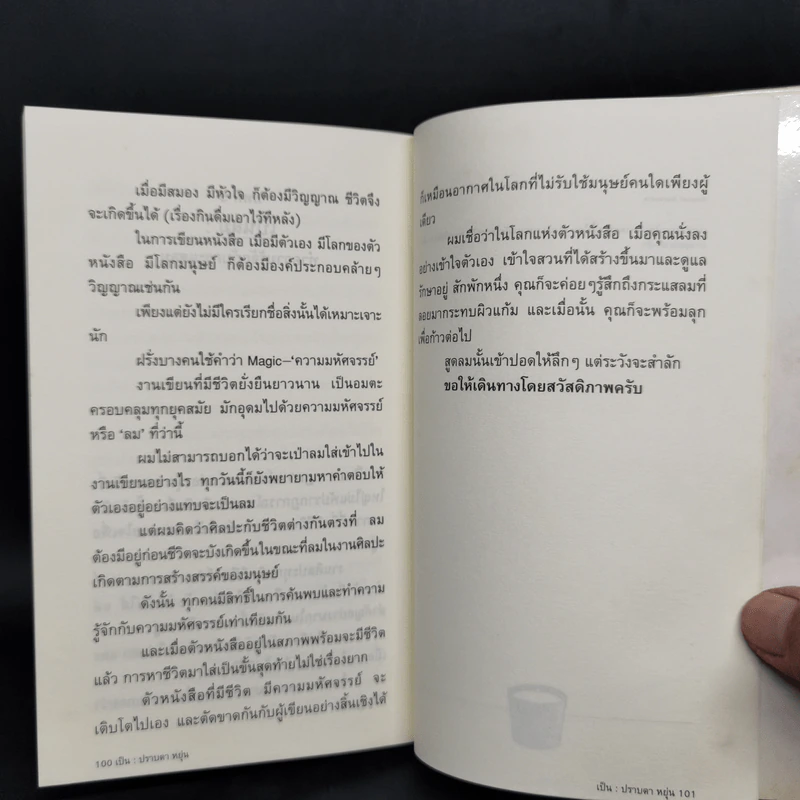 เมื่อมีสมอง มีหัวใจ ก็ต้องมีวิญญาณ ชีวิตจึง
จะเกิดขึ้นได้ (เรื่องกินดื่มเอาไว้ทีหลัง)
ในการเขียนหนังสือ เมื่อมีตัวเอง มีโลกของตัว
หนังสือ มีโลกมนุษย์ ก็ต้องมีองค์ประกอบคล้ายๆ
วิญญาณเช่นกัน
เพียงแต่ยังไม่มีใครเรียกชื่อสิ่งนั้นได้เหมาะเจาะ
นัก
ฝรั่งบางคนใช้คำว่า Magic–‘ความมหัศจรรย์’
งานเขียนที่มีชีวิตยั่งยืนยาวนาน เป็นอมตะ
ครอบคลุมทุกยุคสมัย มักอุดมไปด้วยความมหัศจรรย์
หรือ ‘ลม’ ที่ว่านี้
ผมไม่สามารถบอกได้ว่าจะเป่าลมใส่เข้าไปใน
งานเขียนอย่างไร ทุกวันนี้ก็ยังพยายามหาคำตอบให้
ตัวเองอยู่อย่างแทบจะเป็นลม
แต่ผมคิดว่าศิลปะกับชีวิตต่างกันตรงที่ ลม
ต้องมีอยู่ก่อนชีวิตจะบังเกิดขึ้นในขณะที่ลมในงานศิลปะ
เกิดตามการสร้างสรรค์ของมนุษย์
ดังนั้น ทุกคนมีสิทธิ์ในการค้นพบและทำความ
รู้จักกับความมหัศจรรย์เท่าเทียมกัน
และเมื่อตัวหนังสืออยู่ในสภาพพร้อมจะมีชีวิต
แล้ว การหาชีวิตมาใส่เป็นขั้นสุดท้ายไม่ใช่เรื่องยาก
ตัวหนังสือที่มีชีวิต มีความมหัศจรรย์ จะ
เติบโตไปเอง และตัดขาดกันกับผู้เขียนอย่างสิ้นเชิงได้
100 เป็น : ปราบดา หยุ่น
ก็เหมือนอากาศในโลกที่ไม่รับใช้มนุษย์คนใดเพียงผู้
เดียว
ผมเชื่อว่าในโลกแห่งตัวหนังสือ เมื่อคุณนั่งลง
อย่างเข้าใจตัวเอง เข้าใจสวนที่ได้สร้างขึ้นมาและดูแล
รักษาอยู่ สักพักหนึ่ง คุณก็จะค่อยๆรู้สึกถึงกระแสลมที่
ลอยมากระทบผิวแก้ม และเมื่อนั้น คุณก็จะพร้อมลุก
เพื่อก้าวต่อไป
สูดลมนั้นเข้าปอดให้ลึกๆ แต่ระวังจะสำลัก
ขอให้เดินทางโดยสวัสดิภาพครับ
เป็น : ปราบดา หยุ่น 101